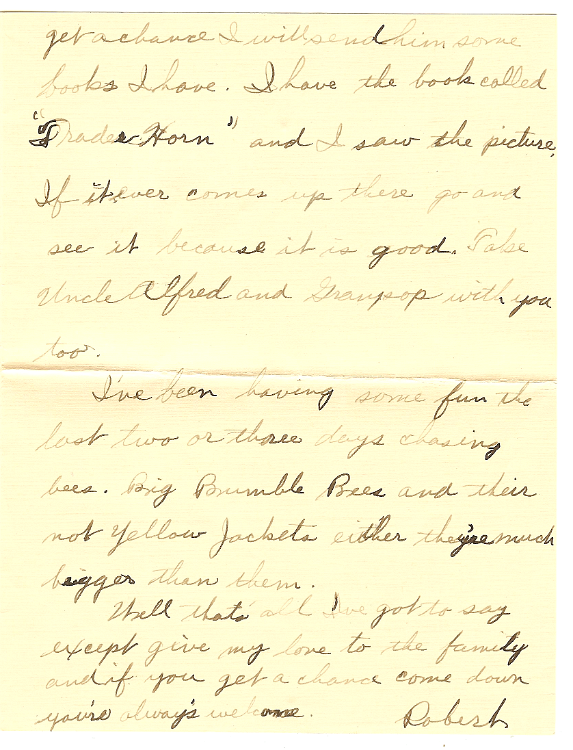 get a chance I will send him some
books I have. I have the book called
"Trader Horn" and I saw the picture.
If it ever comes up there go and
see it because it is good. Take
Uncle Alfred and Grampop with you
too.
I've been having some fun the
last two or three days chasing
bees. Big Brumble Bees and their
not Yellow Jackets either they're much
bigger than them.
Well thats all I've got to say
except give my love to the family
and if you get a chance come down
you're always welcome.
Robert